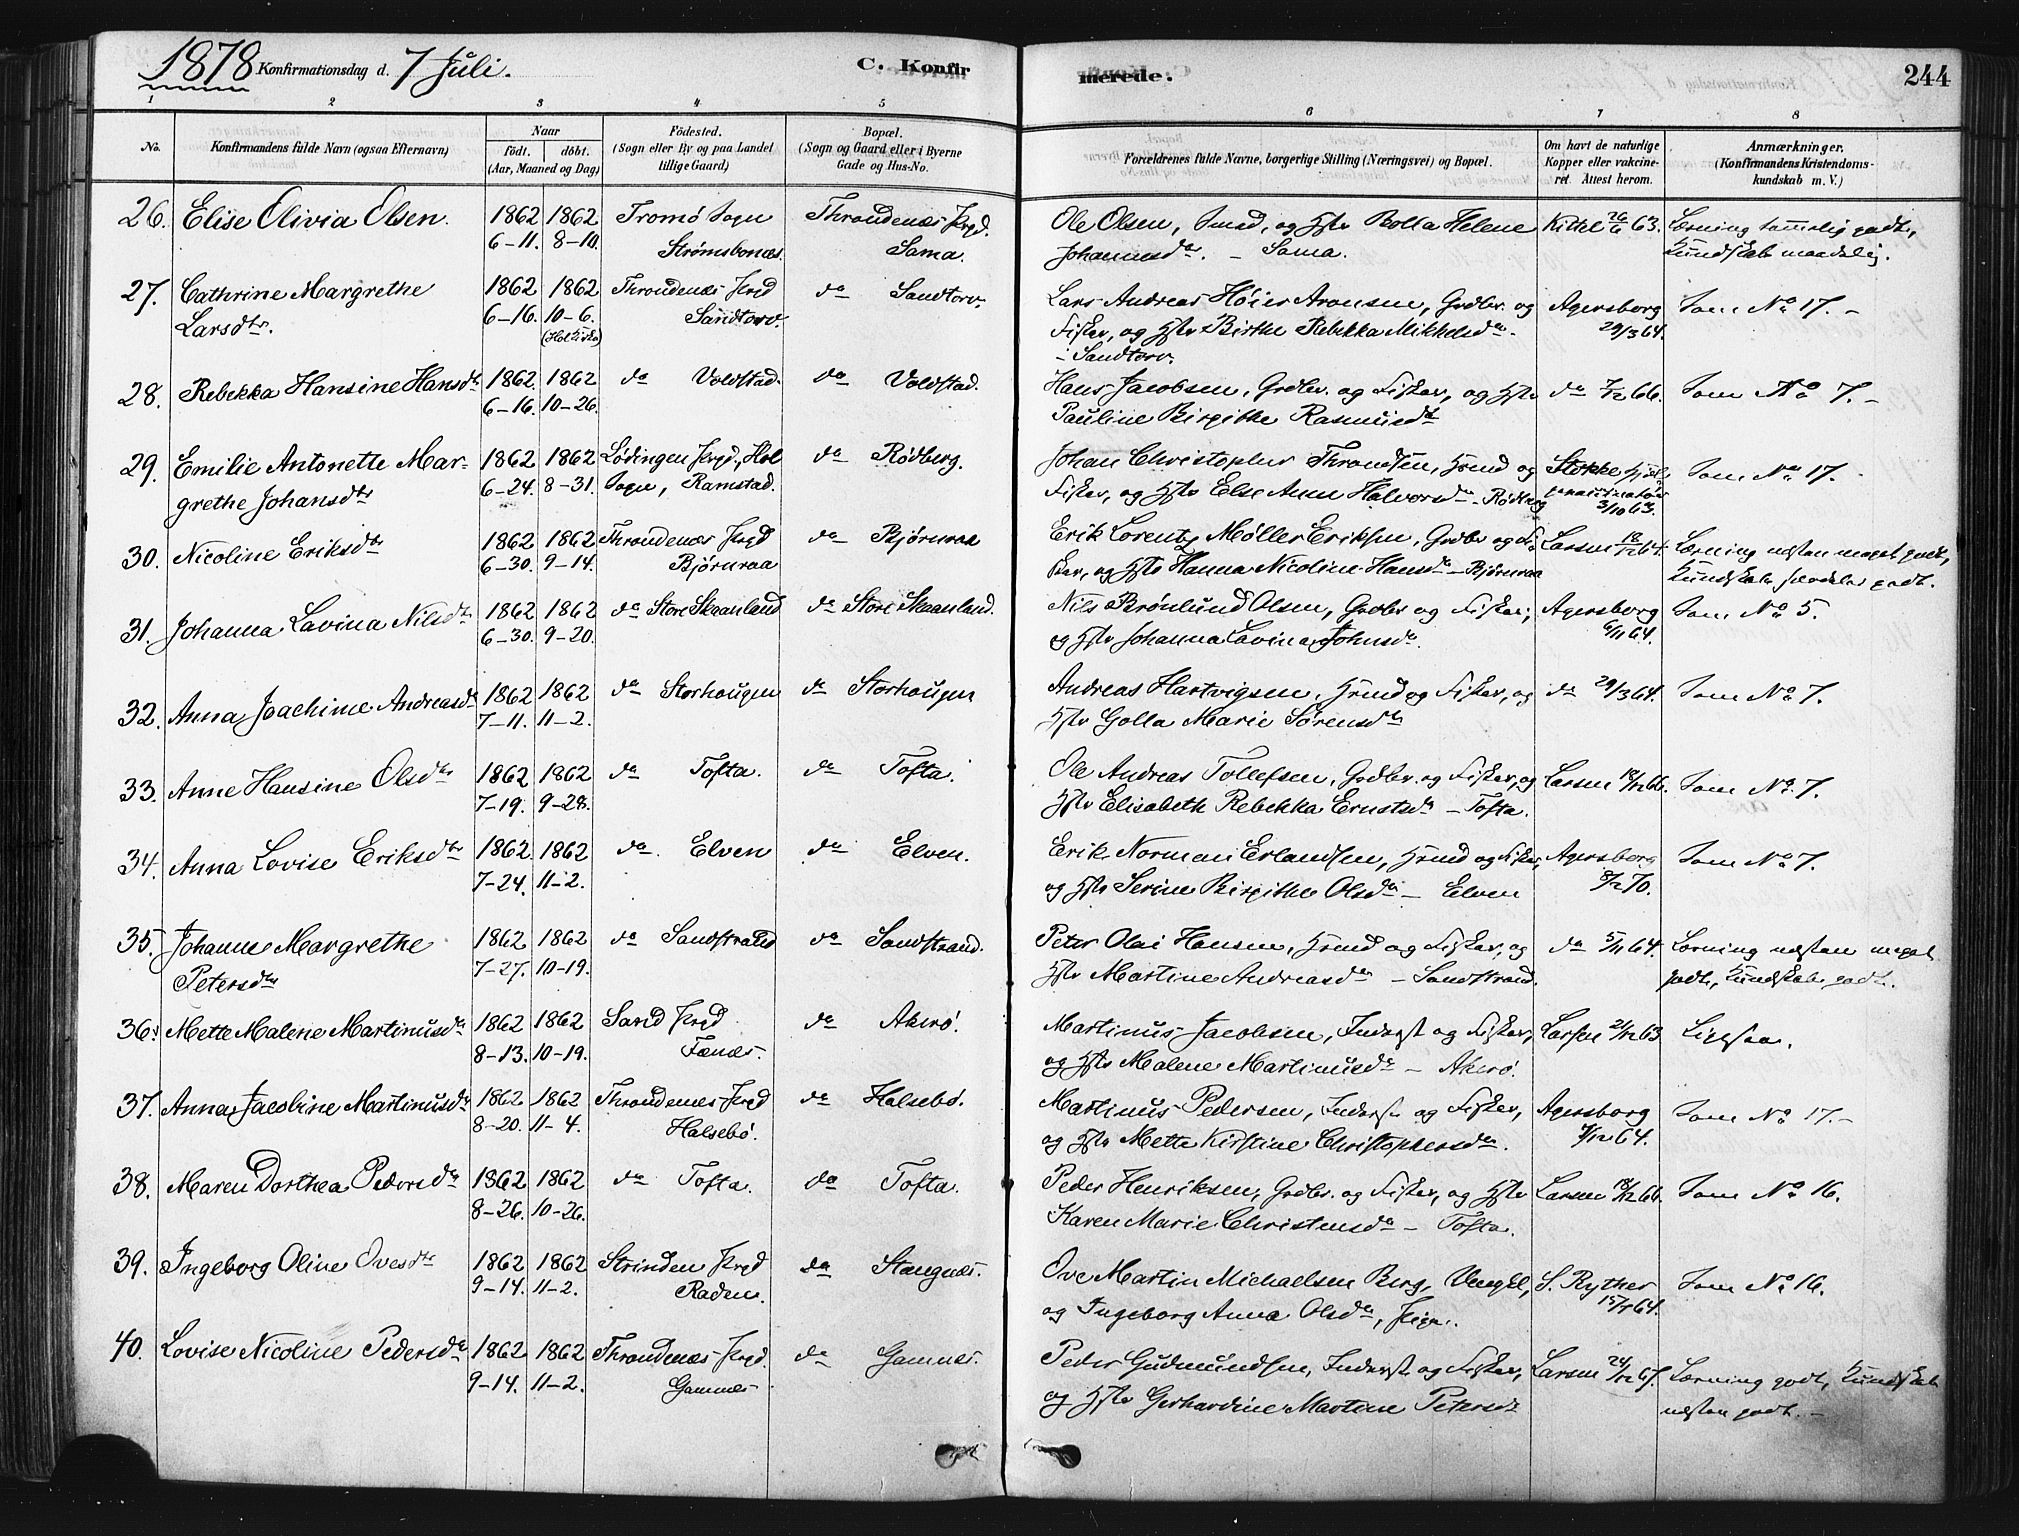 1878 Konfirmationsdag d. 7 Juli. C. Konfir
merede. 244
1 2 3 4 5 6 7 8
No. Konfirmandens fulde Navn (ogsaa Efternavn) Naar født. døbt. (Aar, Maaned og Dag) Fødested. (Sogn eller By og paa Landet tillige Gaard) Bopæl. (Sogn og Gaard eller i Byerne Gade og Hus-No. Forældrenes fulde Navne, borgerlige Stilling (Næringsvei) og Bopæl. Om havt de naturlige Kopper eller vakcineret. Attest herom. Anmærkninger. (Konfirmandens Kristendomskundskab m. V.)
26. Elise Olivia Olsen. 1862 1862 Tromø Sogn Throndenæs Prgd. Ole Olsen, Smed, og Hstr Helene Kittel 26/6 63. Læsning temmelig godt,
6–11. 8–10. Strømsbonæs. Sama. Johannesdr. – Sama. Kundskab maadelig.
27. Cathrine Margrethe 1862 1862 Throndenæs Prgd do Sandtorv. Lars Andreas Høier Aronsen, Grdbr. og Agersborg Som No 17. –
Larsdtr. 6–16. 10–6. Sandtorv. Fisker, og Hstr Birthe Rebekka Mikkelsdr. 29/3 64.
i Sandtorv.
28. Rebekka Hansine Hansdtr 1862. 1862 do Voldstad. do Voldstad. Hans Jacobsen, Grdbr. og Fisker, og Hstr do 7/12 66. Som No 7. –
6–16. 10–26. Pauline Birgithe Rasmusdtr
29. Emilie Antonette Mar- 1862 1862 Lødingen Prgd., Hol do Rødberg. Johan Christopher Throndsen, Hmd og Stokke Som No 17.
grethe Johansdtr 6–24. 8–31. Sogn, Ramstad. Fisker, og Hstr Else Anne Halvorsdr – Rødberg 3/10 63.
30. Nicoline Eriksdtr 1862 1862 Throndenæs Prgd do Bjørnraa Erik Lorentz Møller Eriksen, Grdbr og Fi- Larsen 18/12 64. Læsning næsten meget godt,
6–30. 9–14. Bjørnraa sker, og Hstr Hanna Nicoline Hansdr – Bjørnraa Kundskab saadeles godt.
31. Johanna Lavina Nilsdtr 1862 1862 do Store Skaanland do Store Skaanland. Nils Brønlund Olsen, Grdbr og Fisker, Agersborg Som No 5.
6–30. 9–20. og Hstr Johanna Lovina Johnsdr. 6/11 64.
32. Anna Joachime Andreasdr 1862 1862 do Storhaugen do Storhaugen Andreas Hartvigsen, Hmd og Fisker, og do 29/3 64. Som No 7.
7–11. 11–2. Hstr Golla Marie Sørensdtr
33. Anne Hansine Olsdtr 1862 1862 do Tofta. do Tofta. Ole Andreas Tollefsen, Grdbr. og Fisker, og Larsen 18/12 66. Som No 7.
7–19. 9–28. Hstr Elisabeth Rebekka Ernstsdr – Tofta.
34. Anna Lovise Eriksdtr 1862 1862 do Elven do Elven. Erik Norman Erlandsen, Hmd og Fisker, Agersborg Som No 7.
7–24. 11–2. og Hstr Serine Birgithe Olsdr – Elven 8/12 70.
35. Johanne Margrethe 1862 1862 do Sandstrand do Sandstrand. Peter Olai Hansen, Hmd og Fisker, og do 5/11 64. Læsning næsten meget
Petersdtr 7–27. 10–19. Hstr Martine Andreasdr – Sandstrand. godt, Kundskab godt.
36. Mette Malene Martinusdr 1862 1862 Sand Prgd do Akerø. Martinus Jacobsen, Inderst og Fisker, Larsen 21/12 63 Ligesaa.
8–13. 10–19. Fænæs. og Hstr Malene Martinusdr – Akerø.
37. Anna Jacobine Martinusdr 1862 1862 Throndenæs Prgd do Halsebø. Martinus Pedersen, Inderst og Fisker, Agersborg Som No 17. –
8–20. 11–4. Halsebø. og Hstr Mette Kirstine Christophersdr. 9/12 64.
38. Maren Dorthea Pedersdr 1862 1862 do Tofta. do Tofta. Peder Henriksen, Grdbr. og Fisker, og Hstr Larsen 18/12 66. Som No 16.
8–26. 10–26. Karen Marie Christensdr – Tofta.
39. Ingeborg Oline Ovesdtr 1862 1862 Strinden Prgd do Stangnæs. Ove Martin Michaelsen Berg, Ungkl, S. Ryther Som No 16.
9–14. 11–2. Raden. og Ingeborg Anna Olsdr, Pige. 64.
40. Lovise Nicoline Pedersdr 1862 1862 Throndenæs Prgd. do Gamnes. Peder Gudmundsen, Inderst og Fisker, Larsen 24/12 67. Læsning godt, Kundskab
9–14. 11–2. Gamnes og Hstr Gerhardine Martine Petersdr næsten godt. –